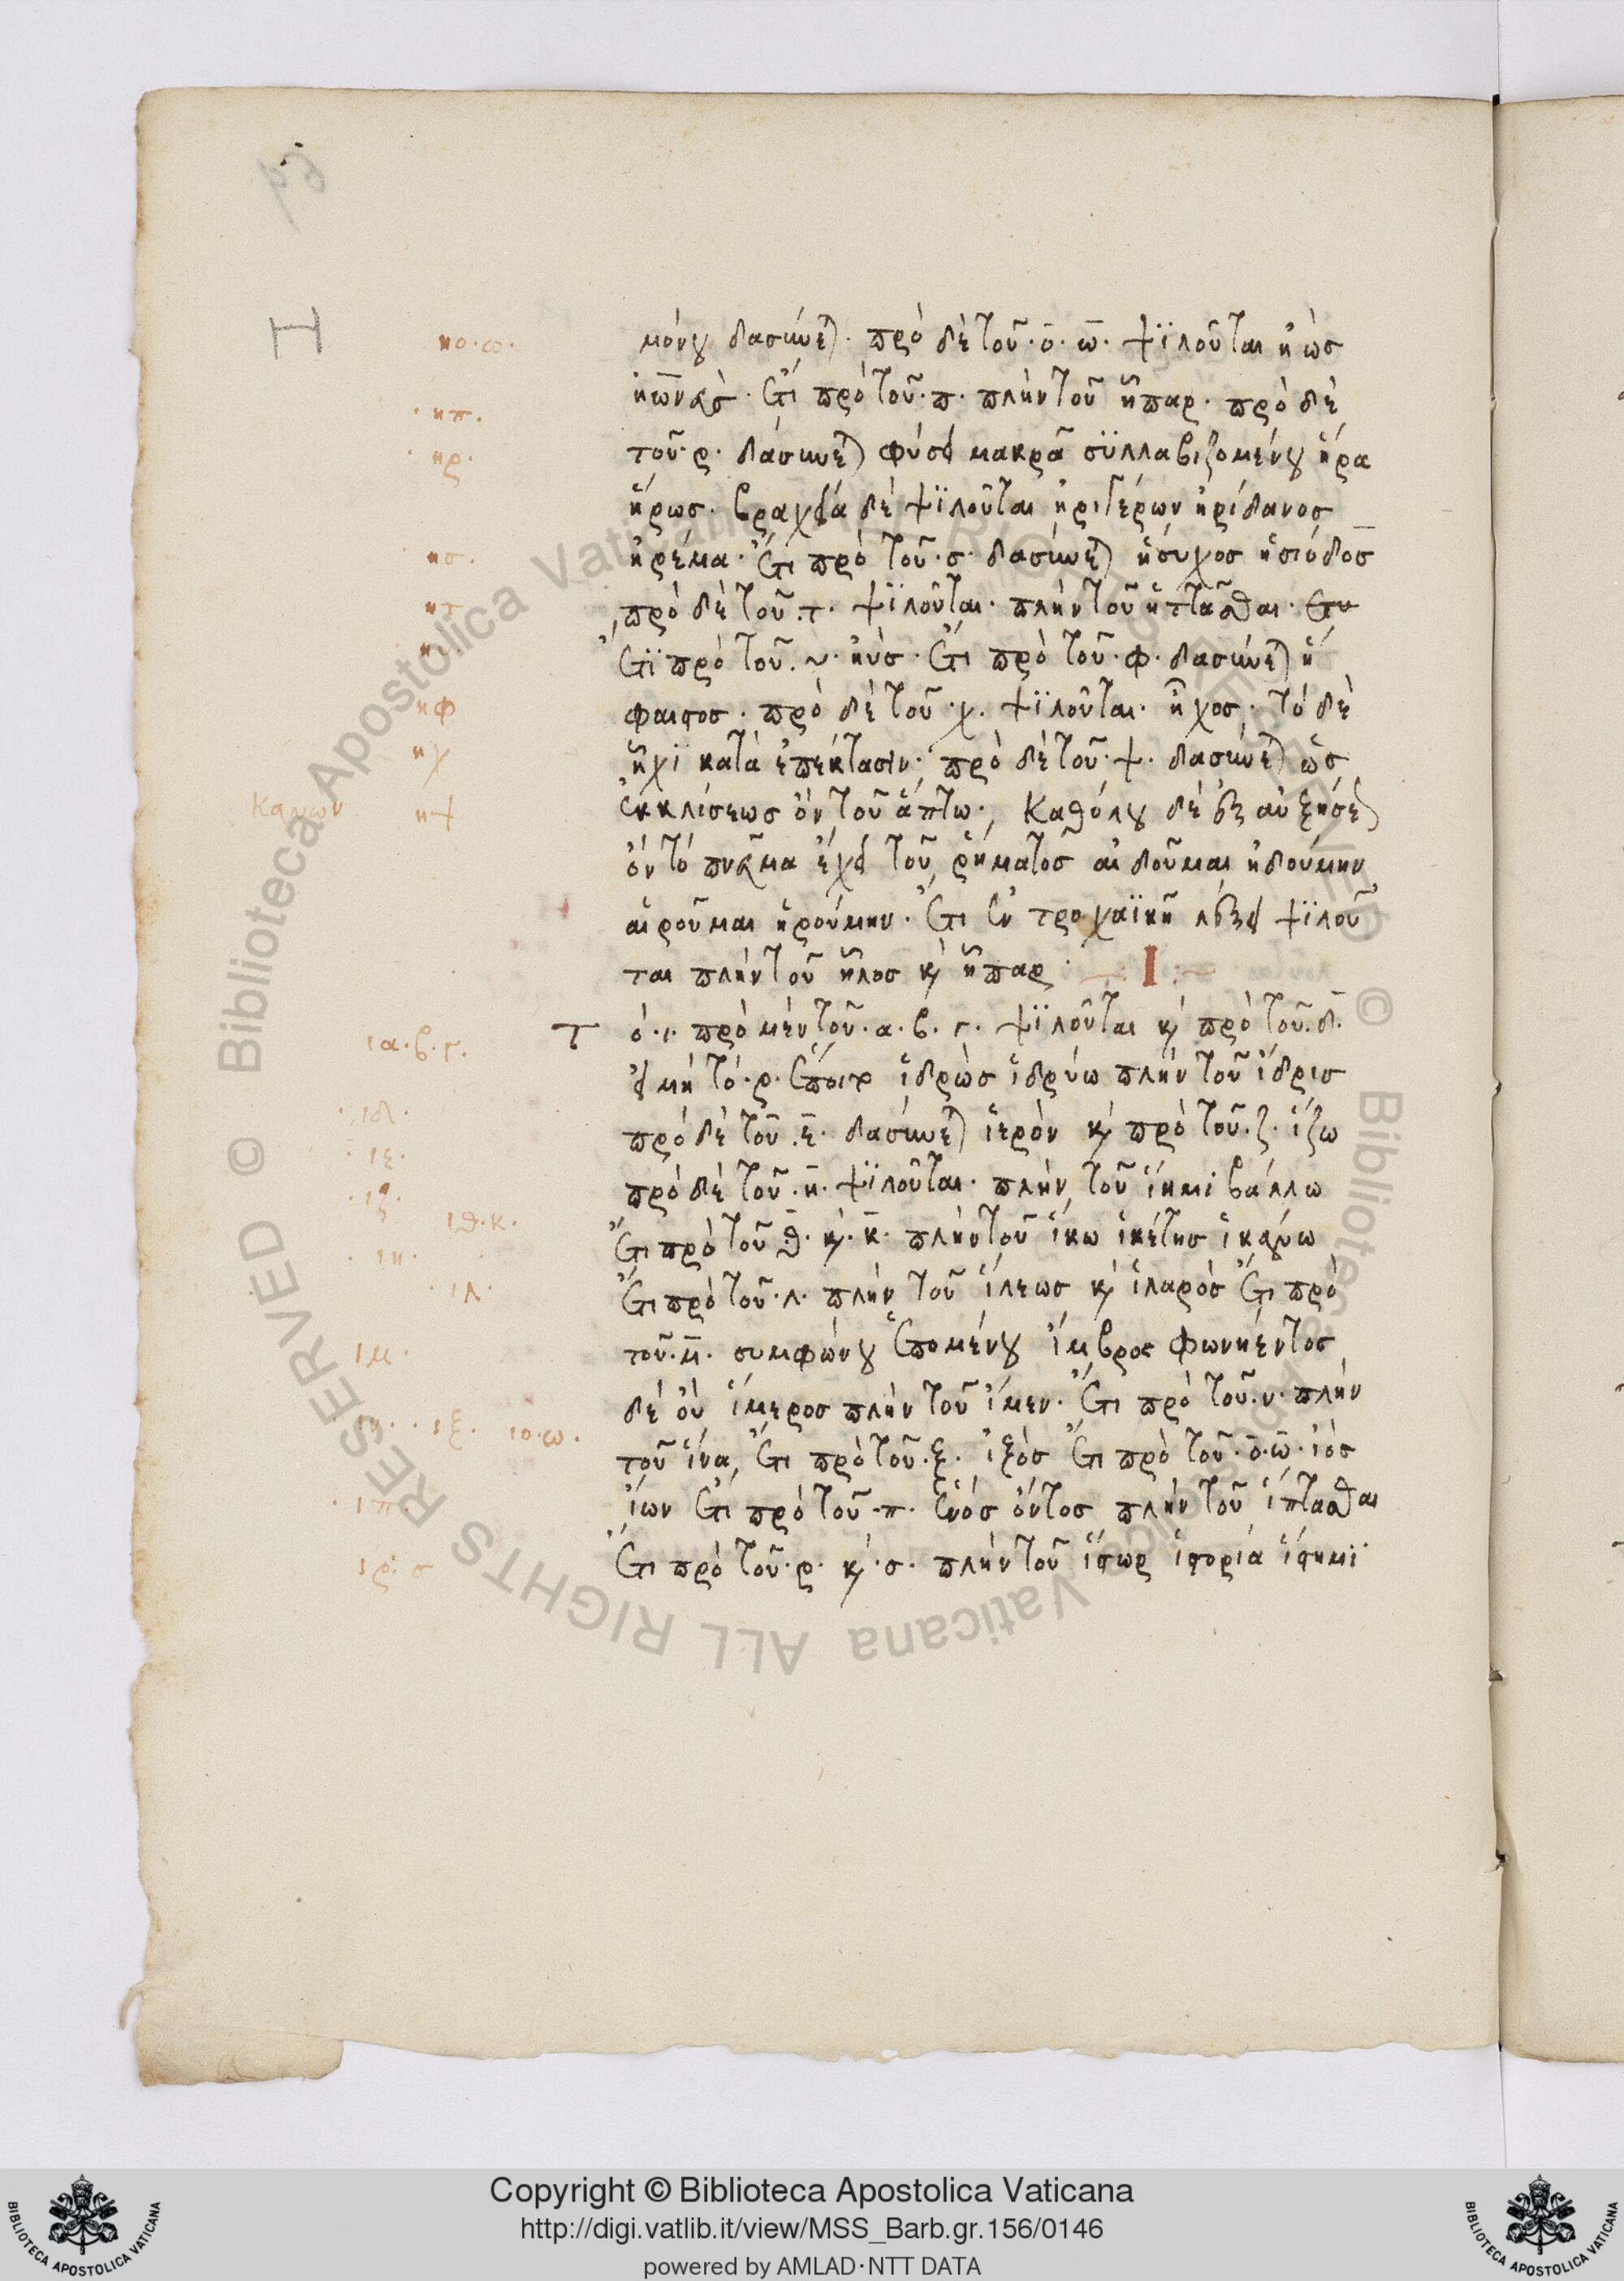 Η
μόνου δασύνεται· πρὸ δὲ τοῦ·ο̄·ω̄· ψϊλοῦται ἠὼσ
πρὸ τοῦ·π· πλὴν τοῦ ἧπαρ· πρὸ δὲ
τοῦ·ρ· δασύνεται φύσει μακρᾶ σϋλλαβιζομένου ἥρα
ἥρωσ· βραχεία δὲ ψϊλοῦται ἠριγέρων ἠρίδανοσ
ἠρέμα· ἔτι πρὸ τοῦ·σ· δασύνεται ἥσυχοσ ἡσιόδοσ
πρὸ δὲ τοῦ·τ· ψϊλοῦται· πλὴν τοῦ ἡττᾶσθαι·
ἔτϊ πρὸ τοῦ·υ· ἠὺσ· ἔτι πρὸ τοῦ·φ· δασύνεται ἥ
φαιστοσ· πρὸ δὲ τοῦ·χ· ψϊλοῦται· ἦχοσ· τὸ δὲ
ἧχϊ κατὰ ἐπέκτασιν· πρὸ δὲ τοῦ·ψ· δασύνεται ὡσ
ἐκκλίσεωσ ὂν τοῦ ἅπτω· καθόλου δὲ ἐξ αὐξήσεται
ὂν τὸ πνεῦμα ἔχει τοῦ ῥήματοσ αἰδοῦμαι ἠδούμην
αἱροῦμαι ἡρούμην· ἔτι ἐν τροχαϊκῆ λέξει ψϊλοῦ
ται πλὴν τοῦ ἧλοσ καὶ ἧπαρ· Ι
Τ ὸ·ι· πρὸ μὲν τοῦ·α·β·γ· ψϊλοῦται καὶ πρὸ τοῦ·δ·
εἰ μὴ τὸ·ρ· ἕποιτο ἱδρὼσ ἱδρύω πλὴν τοῦ ἴδρισ
πρὸ δὲ τοῦ·ε̄· δασύνεται ἱερὸν καὶ πρὸ τοῦ·ζ· ἵζω
πρὸ δὲ τοῦ·η̄· ψϊλοῦται· πλὴν τοῦ ἵημϊ βάλλω
ἔτι πρὸ τοῦ·θ̄· καὶ·κ̄· πλὴν τοῦ ἵκω ἱκέτησ ἱκάνω
ἔτι πρὸ τοῦ·λ· πλὴν τοῦ ἵλεωσ καὶ ἱλαρὸσ ἔτι πρὸ
τοῦ·μ̄· συμφώνου ἑπομένου ἴμβροσ φωνήεντοσ
δὲ οὐ ἵμεροσ πλὴν τοῦ ἴμεν· ἔτι πρὸ τοῦ·ν· πλὴν
τοῦ ἵνα, ἔτι πρὸ τοῦ·ξ· ἰξὸσ ἔτι πρὸ τοῦ·ο̄·ω̄· ἰὸσ
ἴων ἔτι πρὸ τοῦ·π· ἑνὸσ ὄντοσ πλὴν τοῦ ἵπτασθαι
ἔτι πρὸ τοῦ·ρ· καὶ·σ· πλὴν τοῦ ἵστωρ ἱστορία ἵστημϊ
ηο·ω·
ηπ·
ηρ·
ησ·
ητ
ηυ·
ηφ
ηχ
Κανων ηψ
ια·β·γ·
ιδ·
ιε·
ιζ·
ιθ·κ·
ιη·
ιλ·
ιμ·
ιν· ιξ· ιο·ω·
ιπ·
ιρ·σ
Copyright © Biblioteca Apostolica Vaticana
http://digi.vatlib.it/view/MSS_Barb.gr.156/0146
powered by AMLAD·NTT DATA
BIBLIOTECA APOSTOLICA VATICANA
BIBLIOTECA APOSTOLICA VATICANA
© Biblioteca Apostolica Vaticana ALL RIGHTS RESERVED © Biblioteca Apostolica Vaticana ALL RIGHTS RESERVED